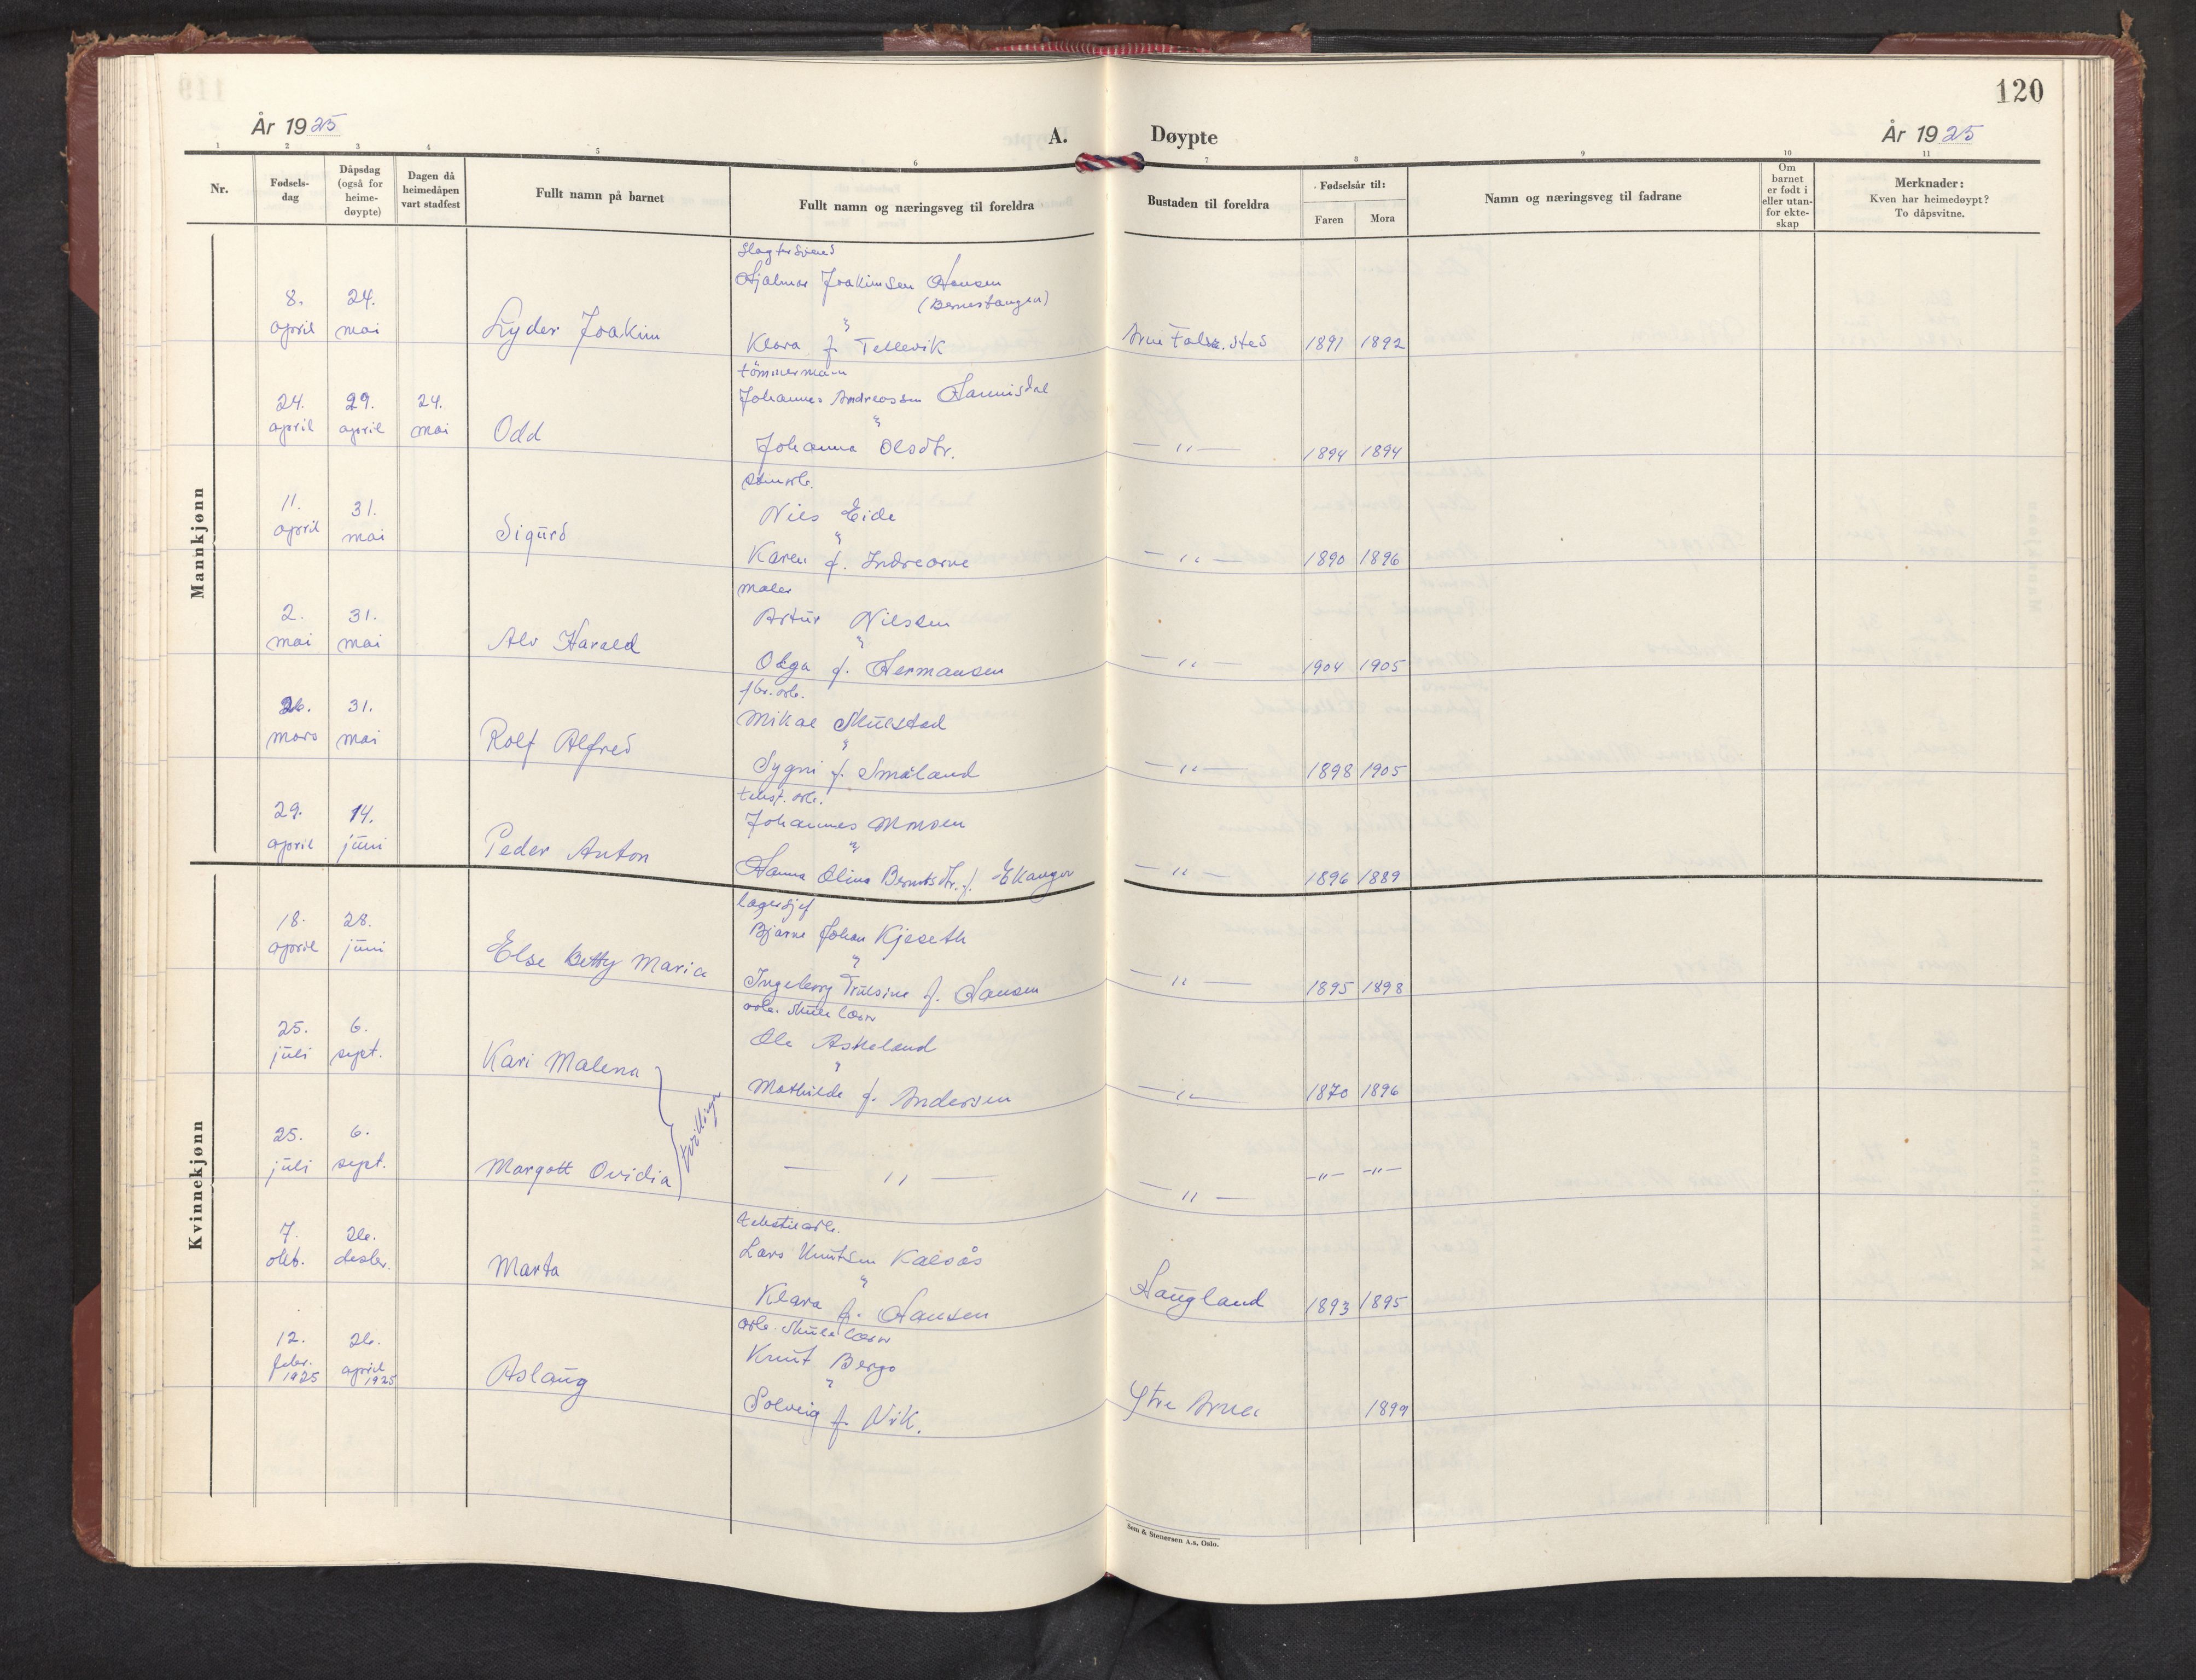 120
År 1925
A. Døypte
År 1925
1 2 3 4 5 6 7 8 9 10 11
Nr.
Fødsels-
dag
Dåpsdag
(også for
heime-
døypte)
Dagen då
heimedåpen
vart stadfest
Fullt namn på barnet
Fullt namn og næringsveg til foreldra
Bustaden til foreldra
Fødselsår til:
Faren Mora
Namn og næringsveg til fadrane
Om
barnet
er født i
eller utan-
for ekte-
skap
Merknader:
Kven har heimedøypt?
To dåpsvitne.
Mannkjønn
Slagtersvend
Hjalmar Joakimsen Hansen
8. 24.
april mai Lyder Joakim
Klara f. Tellevik
1891 1892
tömmermann
Johannes Andreassen Hannisdal
24. 29. 24.
april april mai Odd
Johanna Olsdtr. — " — 1894 1894
Nils Eide
11. 31.
april mai Sigurd
Karen f. Indrearne — " — 1890 1896
maler
Artur Nilssen
2. 31.
mai mai Alv Harald
Olga f. Hermansen — " — 1904 1905
fbr. arb.
Mikal Skulstad
26. 31.
mars mai Rolf Alfred
Sygni f. Småland — " — 1898 1905
tekst. arb.
Johannes Monsen
29. 14.
april juni Peder Anton
Hanna Olina Berntsdtr. f. Ekanger — " — 1896 1889
Kvinnekjønn
lagersjef
Bjarne Johan Kjeseth
18. 28.
april juni Else Betty Maria
Ingeborg Trulsine f. Hansen — " — 1895 1898
arb. skule lærar
Ole Askeland
25. 6.
juli sept. Kari Malena
Mathilde f. Andersen — " — 1870 1896
tvillingar
25. 6.
juli sept. Margott Ovidia — " — — " — —"— —"—
tekstilarb.
Lars Knutsen Kalsås
7. 26.
okt. desbr. Marta
Klara f. Hansen Haugland 1893 1895
arb. skule lærar
Knut Berge
12. 26.
febr. april
1925 1925 Aslaug
Solveig f. Vik. Ytre Arna 1899
Sem & Stenersen A.s, Oslo.